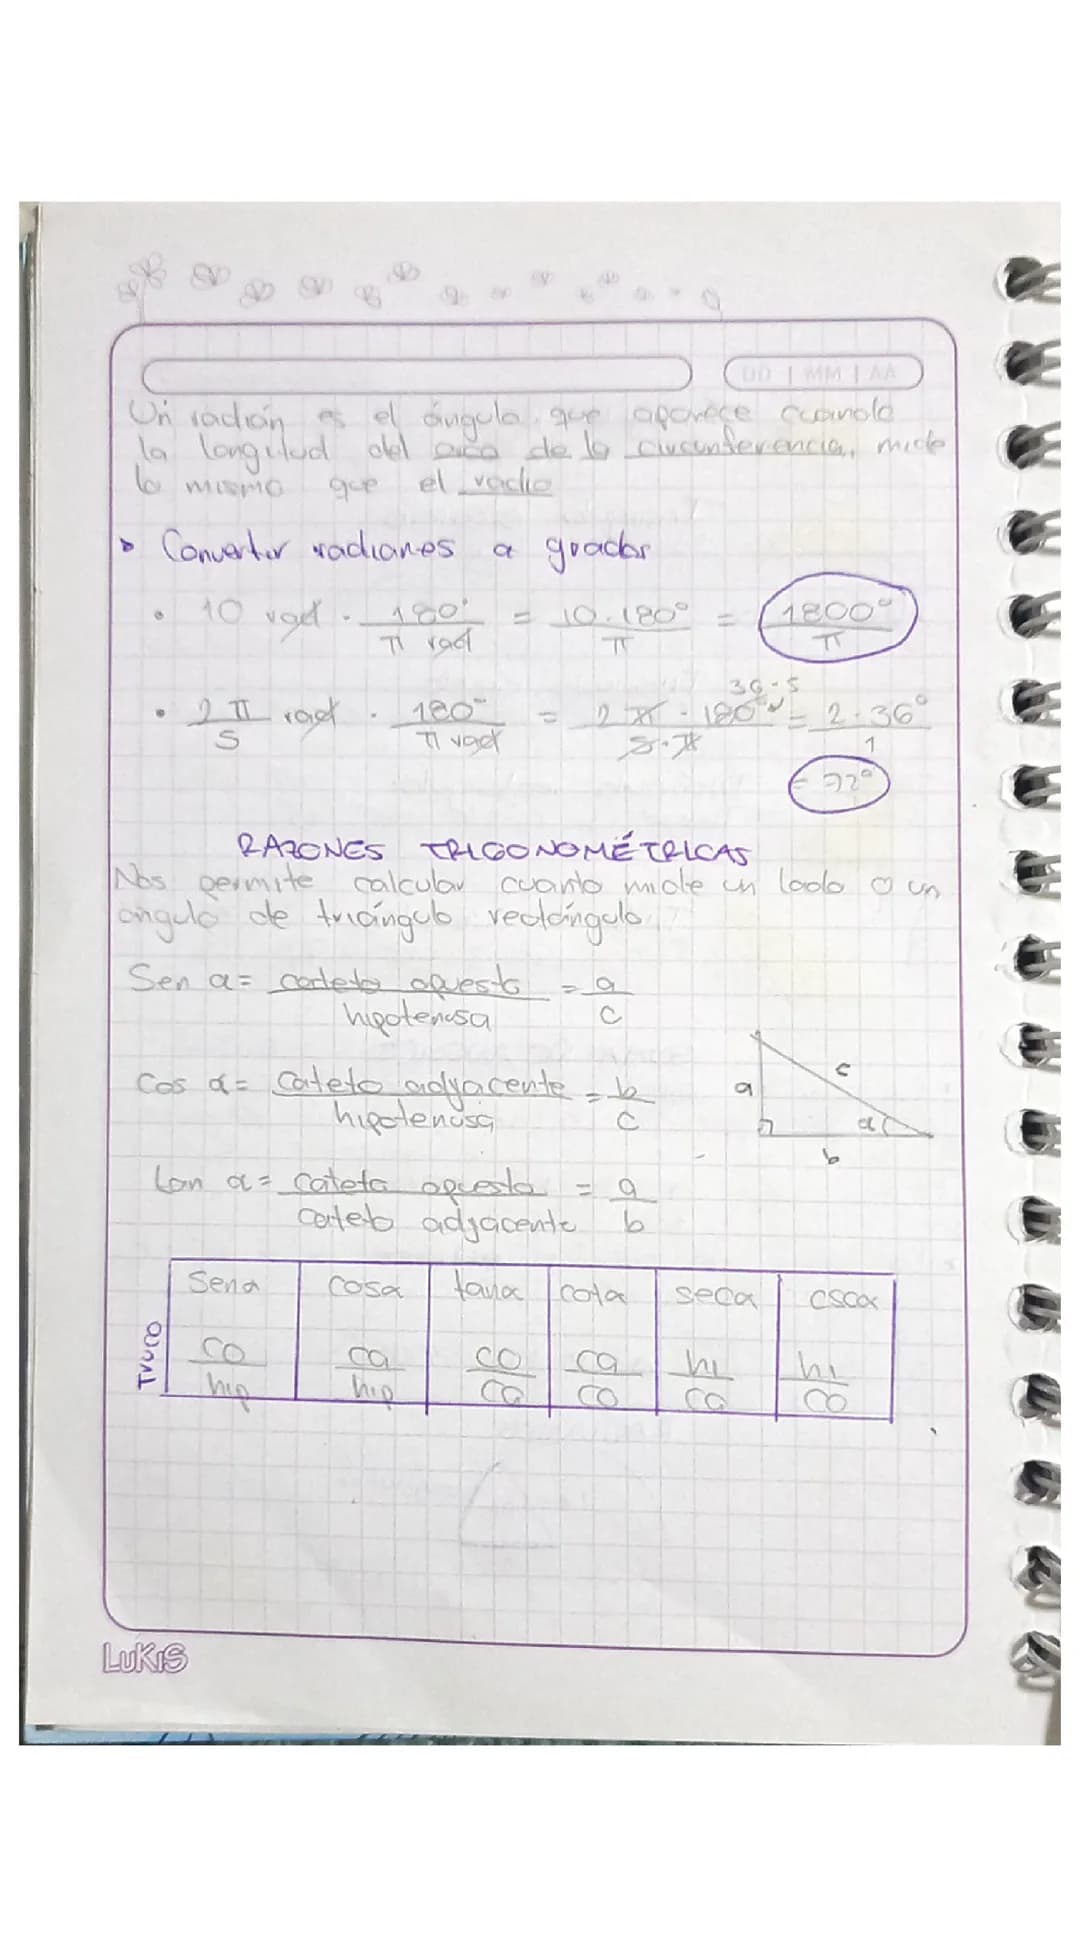 DD | MM | AA
Un radián es el ángulo que aparece cuando
la longitud del arco de la circunferencia, mide
lo mismo que el radio
Convertir radianes a grados
• 10 rad · 180° / π rad = 10·180° / π = 1800° / π
• 2π / 5 rad · 180° / π rad = 2π · 180° / 5·π = 2·36° / 1
36·5
= 72°
RAZONES TRIGONOMÉTRICAS
Nos permite calcular cuanto mide un lado o un
ángulo de triángulo rectángulo
Sen α = cateto opuesto / hipotenusa = a / c
Cos α = cateto adyacente / hipotenusa = b / c
tan α = cateto opuesto / cateto adyacente = a / b
a
c
α
b
Truco
Senα cosα tanα cotα secα cscα
co/hip ca/hip co/ca ca/co hi/ca hi/co
LUKIS